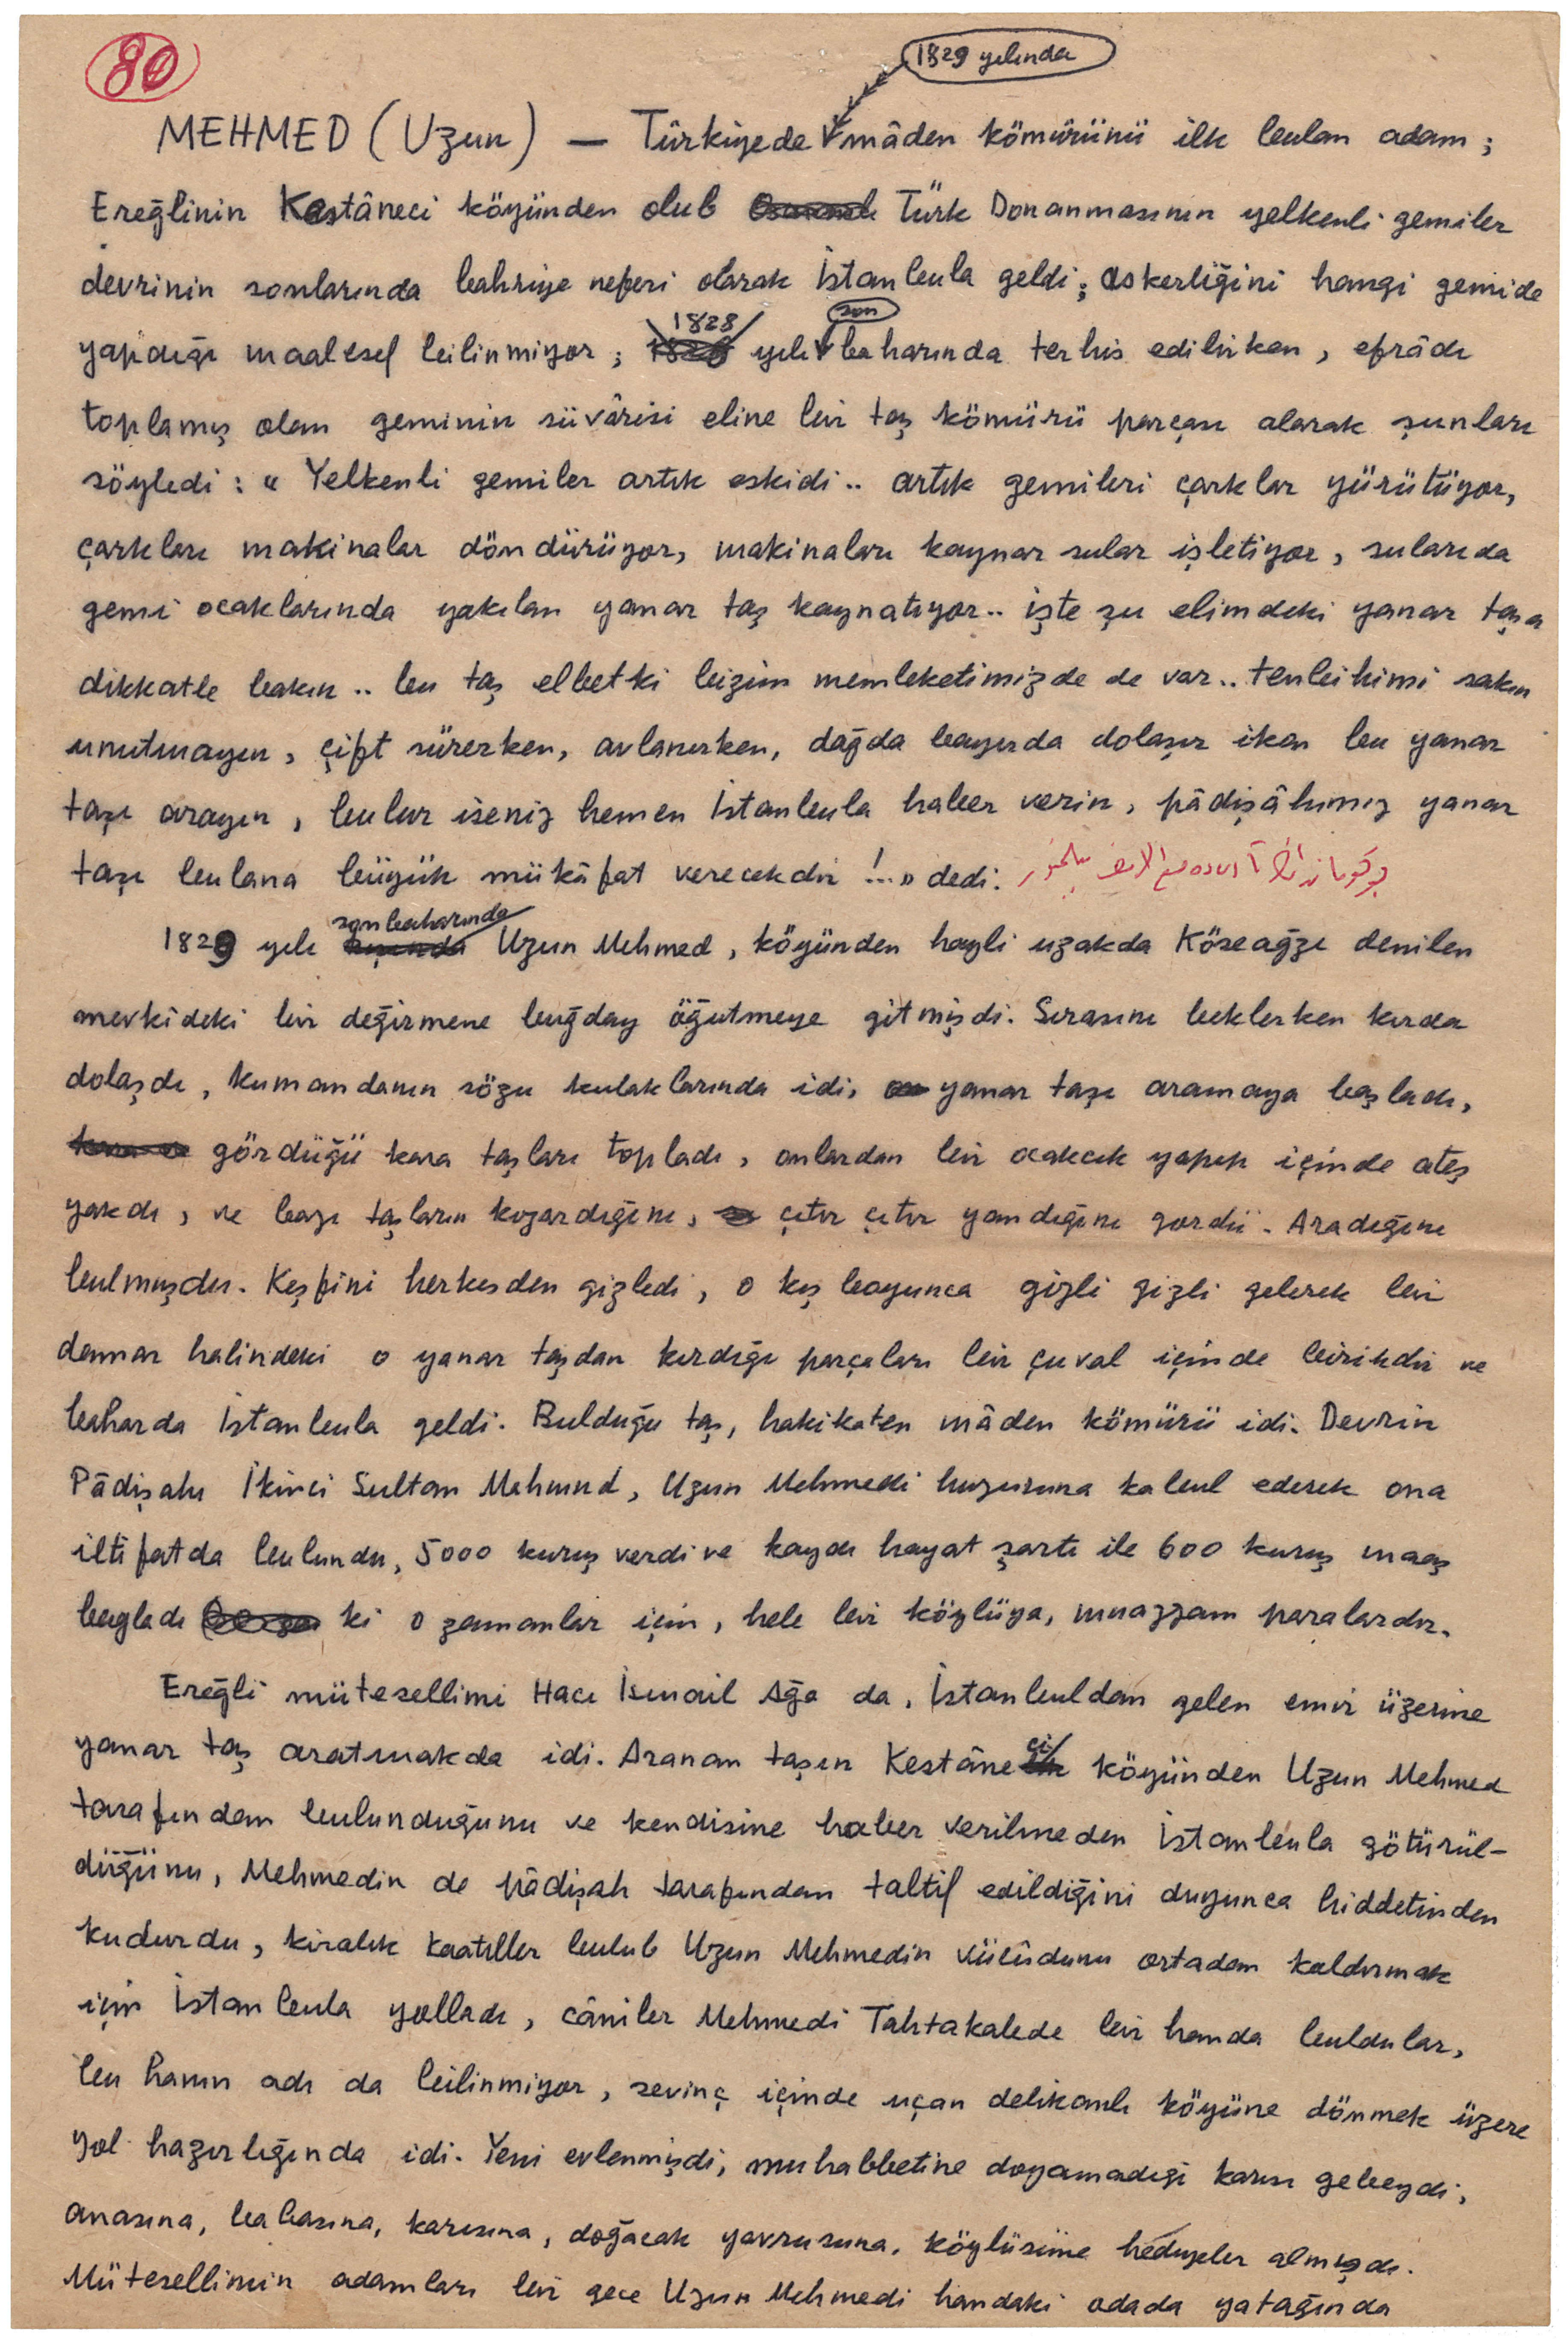 80
1829 yılında
MEHMED (Uzun) — Türkiyede mâden kömürünü ilk bulan adam;
Ereğlinin Kestâneci köyünden olub Türk Donanmasının yelkenli gemiler
devrinin sonlarında bahriye neferi olarak İstanbula geldi; askerliğini hangi gemide
son
1828
yapdığı maalesef bilinmiyor; yılı baharında terhis edilirken, efrâdı
toplamış olan geminin süvârisi eline bir taş kömürü parçası alarak şunları
söyledi : « Yelkenli gemiler artık eskidi.. artık gemileri çarklar yürütüyor,
çarkları makinalar döndürüyor, makinaları kaynar sular işletiyor, sularıda
gemi ocaklarında yakılan yanar taş kaynatıyor.. işte şu elimdeki yanar taşa
dikkatle bakın.. bu taş elbetki bizim memleketimizde de var.. tenbihimi sakın
unutmayın, çift sürerken, avlanırken, dağda bayırda dolaşır iken bu yanar
taşı arayın, bulur iseniz hemen İstanbula haber verin, pâdişâhımız yanar
taşı bulana büyük mükâfat verecekdir !..» dedi.
sonbaharında
1829 yılı Uzun Mehmed, köyünden hayli uzakda Köseağzı denilen
mevkideki bir değirmene buğday öğütmeye gitmişdi. Sırasını beklerken kırda
dolaşdı, kumandanın sözü kulaklarında idi, yanar taşı aramaya başladı,
gördüğü kara taşları topladı, onlardan bir ocakcık yapıp içinde ateş
yakdı, ve bazı taşların kızardığını, çıtır çıtır yandığını gördü. Aradığını
bulmuşdu. Keşfini herkesden gizledi, o kış boyunca gizli gizli gelerek bir
damar halindeki o yanar taşdan kırdığı parçaları bir çuval içinde birikdir ve
baharda İstanbula geldi. Bulduğu taş, hakikaten mâden kömürü idi. Devrin
Pâdişahı İkinci Sultan Mahmud, Uzun Mehmedi huzuruna kabul ederek ona
iltifatda bulundu, 5000 kuruş verdi ve kaydı hayat şartı ile 600 kuruş maaş
bağladı ki o zamanlar için, hele bir köylüye, muazzam paralardır.
Ereğli mütesellimi Hacı İsmail Ağa da, İstanbuldan gelen emir üzerine
yanar taş aratmakda idi. Aranan taşın Kestâneci köyünden Uzun Mehmed
tarafından bulunduğunu ve kendisine haber verilmeden İstanbula götürül-
düğünü, Mehmedin de pâdişah tarafından taltif edildiğini duyunca hiddetinden
kudurdu, kiralık kaatiller bulub Uzun Mehmedin vücûdunu ortadan kaldırmak
için İstanbula yolladı, câniler Mehmedi Tahtakalede bir handa buldular,
bu hanın adı da bilinmiyor, sevinç içinde uçan delikanlı köyüne dönmek üzere
yol hazırlığında idi. Yeni evlenmişdi, muhabbetine doyamadığı karısı gebeydi,
anasına, babasına, karısına, doğacak yavrusuna, köylüsüne hediyeler almışdı.
Mütesellimin adamları bir gece Uzun Mehmedi handaki odada yatağında